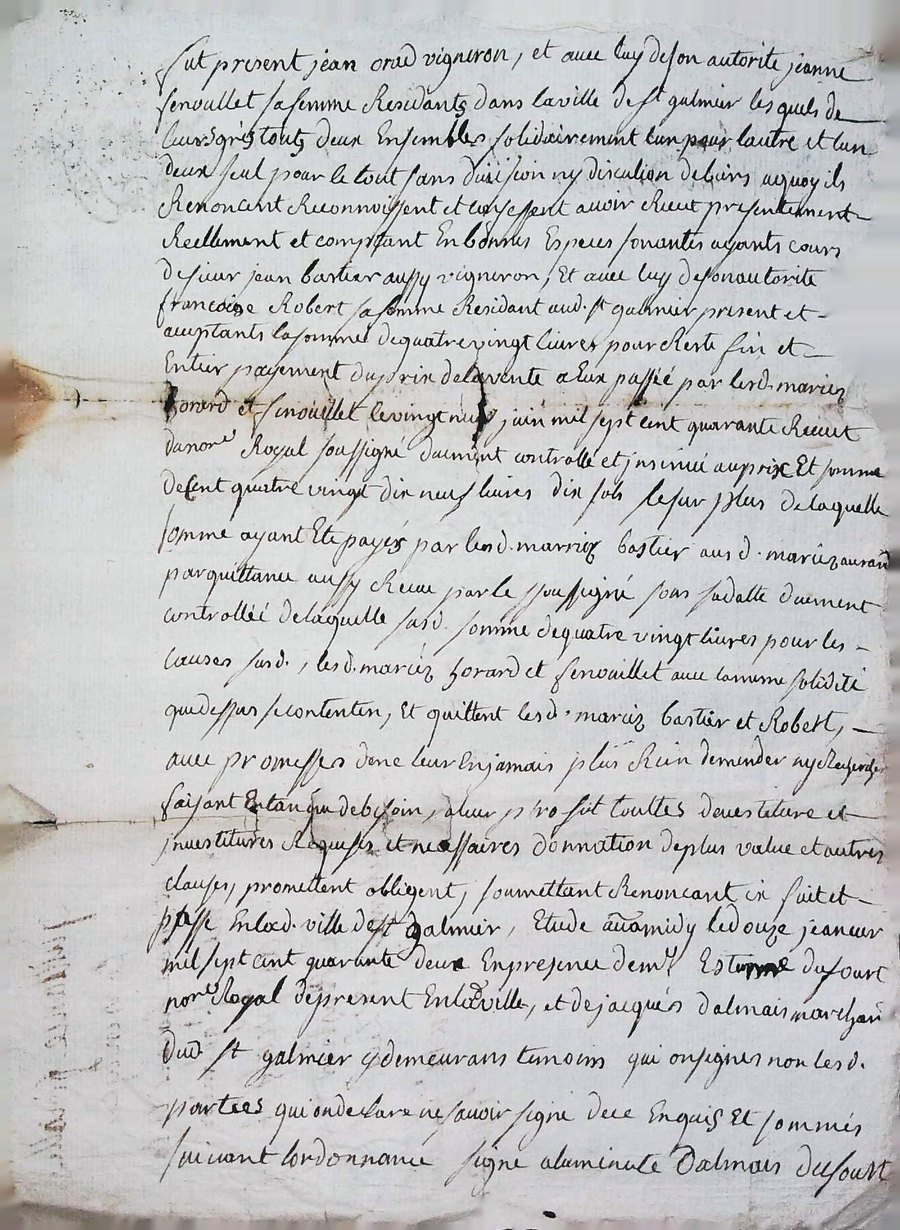 fut present jean orad vigneron, et avec luy de son autorite jeanne
fenouillet sa femme Residants dans la ville de st galmier lesquels de
leurs grés touts deux Ensembles solidairement lun pour lautre et lun
deux seul pour le tout sans division ny discution de biens a quoy ils
Renoncent Reconnoissent et confessent avoir Receu presentement
Reellement et comptant En bonnes Especes sonantes ayants cours
de sieur jean bastier aussy vigneron, Et avec luy de son autorite
francoise Robert sa femme Residant aud. st galmier present et
acceptants la somme de quatre vingt livres pour Reste fin et
Entier payement du prix de la vente a Eux passée par lesd. mariez
et fenouillet le vingt neuf juin mil sept cent quarante Receüe
du nore Royal soussigné duement controlle et jnsinué au prix Et somme
de Cent quatre vingt dix neuf livres dix sols le sur plus de laquelle
somme ayant Ete payés par lesd. marriez bastier ausd. mariez
par quittance aussy Receue par le soussigné sous sa datte duement
controlleé de laquelle susd. somme de quatre vingt livres pour les
causes susd., lesd. mariéz horard et fenouillet avec la meme solidité
que dessus se contenten, Et quittent lesd. mariez bastier et Robert,
avec promesses de ne leur En jamais plus Rien demender ny Rechercher
faisant En tan que de besoin, a leur profit touttes devestiture et
jnvestitures Requises et necessaires donnation de plus value et autres
clauses, promettent obligent, soumettant Renoncant &c fait et
passe En lad. ville de st galmier, Etude avamidy le douze jeanvier
mil sept cent quarante deux En presence de mr dufourt
nore Royal de present En lad ville, et de jacques dalmais marchan
dud. st galmier y demeurans temoins qui on signes non lesd.
partees qui on declare ne savoir signé de ce Enquis Et sommés
suivant lordonnance signe a la minute Dalmais dufourt